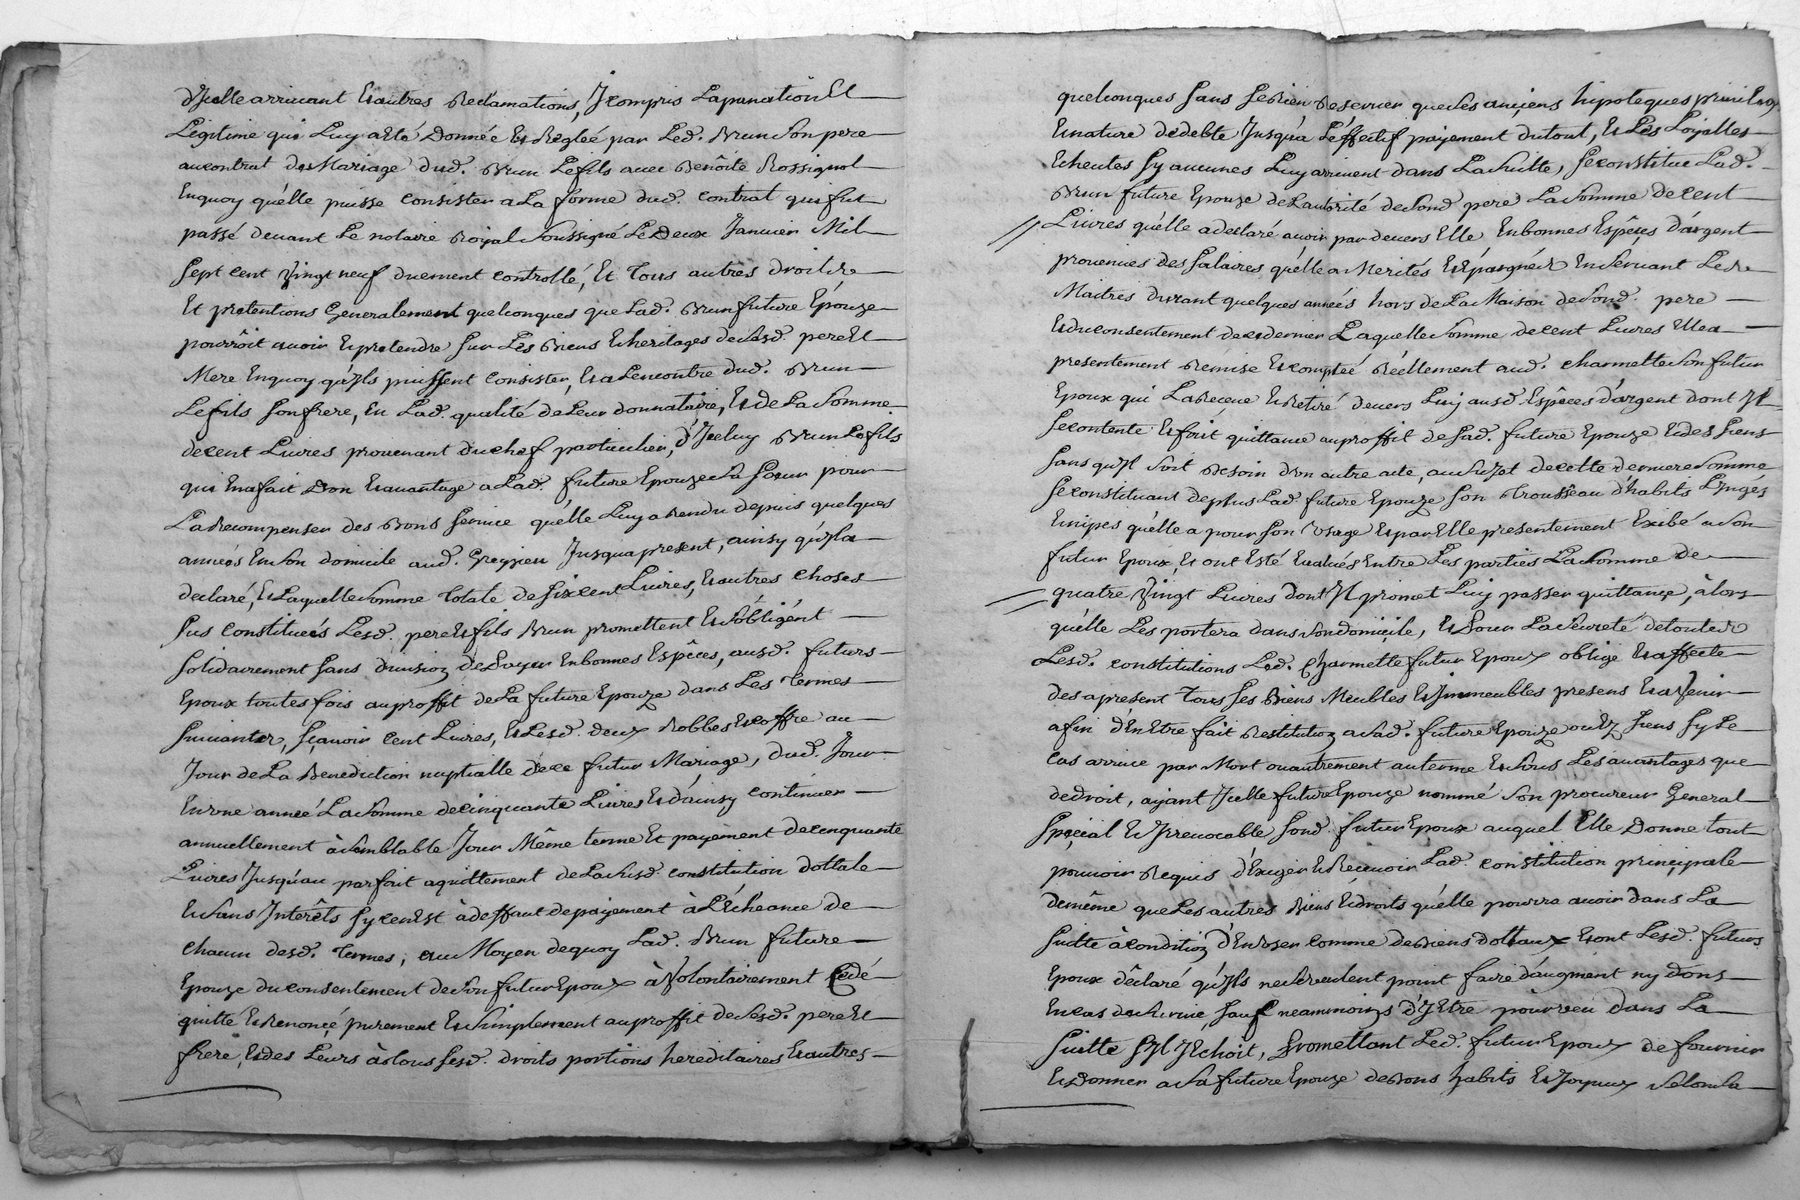 d'Jcelle arrivant Et autres Reclamations, J compris Laparnation Et
Legitime qui Luy a Eté Donnée Et Regleé par Led. Brun Son pere
au contrat de Mariage dud. Brun Le fils avec Benôite Rossignol
En quoy qu'elle puisse consister a La forme dud. contrat qui fut
passé devant Le notaire Royal Soussigné Le Deux Janvier Mil
Sept cent Vingt neuf duement controllé, Et Tous autres droits
Et pretentions Generalement quelconques que Lad. Brun future Epouze
pourrôit avoir Et pretendre Sur Les Biens Et heritages de Sesd. pere Et
Mere En quoy qu'Jls puissent consister, Et a Lencontre dud. Brun
Le fils Son frere, En Lad. qualité de Leur donnataire, Et de La Somme
de cent Livres provenant du chef particulier, d'Jceluy Brun Le fils
qui En a fait Don Et avantage a Lad. future Epouze Sa Soeur pour
La Recompenser des Bons Service qu'elle Luy a Rendu depuis quelques
années En Son domicile aud. Grezieu Jusqua present, ainsy qu'Jl a
declaré, Et Laquelle Somme Totale de Six cent Livres, Et autres choses
Sus constitueés Lesd. pere Et fils Brun promettent Et S'obligént
Solidairement Sans division de Payer En bonnes Espêces, ausd. futurs
Epoux toutes fois au proffit de La future Epouze dans Les Termes
Suivants, Sçavoir cent Livres, Et Lesd. deux Robbes Et coffre au
Jour de La Benediction nuptialle de ce futur Mariage, dud. Jour
En Une anneé La Somme de cinquante Livres Et d'ainsy continüer
annuellement à Semblable Jour Même terme Et payement de cinquante
Livres Jusqu'au parfait aquittement de La Susd. constitution dottale
Et Sans Jnterêts Sy ce n'Est à deffaut de payement à L'écheance de
chacun desd. Termes, au Moyen de quoy Lad. Brun future
Epouze du consentement de Son futur Epoux à Volontairement Cedé
quitté Et Renoncé purement Et Simplement au proffit de Sesd. pere Et
frere, Et des Leurs à Tous Sesd. droits portions hereditaires Et autres
quelconques Sans Se Rien Reserver que Ses anciens hipoteques privileges
Et nature de debte Jusqu'a L'éffectif payement du tout, Et Les Loyalles
Echeutes Sy aucunes Luy arrivent dans La Suitte, Se constitue Lad.
Brun future Epouze de L'autorité de Sond. pere La Somme de cent
Livres qu'elle a declaré avoir par devers Elle En bonnes Espêces d'argent
provenües des Salaires qu'elle a Merités Et Epargnés En Servant Les
Maitres durant quelques anneés hors de La Maison de Sond. pere
Et du consentement de ce dernier Laquelle Somme de cent Livres Elle a
presentement Remise Et compteé Réellement aud. charmette Son futur
Epoux qui La Receue Et Retiré devers Luy ausd. Espêces d'argent dont Jl
Se contente Et fait quittance au proffit de Sad. future Epouze Et des Siens
Sans qu'Jl Soit Besoin d'un autre acte, au Sujet de cette derniere Somme
Se constituant de plus Lad. future Epouze Son Trousseau d'habits Linges
Et nipes qu'elle a pour Son Usage Et par Elle presentement Exibé a Son
futur Epoux, Et ont Esté Evalués Entre Les parties La Somme de
quatre Vingt Livres Dont Jl promet Luy passer quittance, à lors
qu'elle Les portera dans Son domicile, Et Pour La Seureté de toutes
Lesd. constitutions Led. Charmette futur Epoux oblige Et affecte
des a present Tous Ses Biens Meubles Et Jmmeubles presens Et a Venir
afin d'En Etre fait Restitution a Sad. future Epouze ou Ez Siens Sy Le
cas arrive par Mort ou autrement au terme Et Sous Les avantages que
de droit, ayant Jcelle future Epouze nommé Son procureur General
Special Et Jrrevocable Sond. futur Epoux auquel Elle Donne tout
pouvoir Requis d'Exiger Et Recevoir Lad. constitution principale
de même que Les autres Biens Et droits qu'elle pourra avoir dans La
Suitte à condition d'En Vser comme de Biens dottaux Et ont Lesd. futurs
Epoux dêclaré qu'Jls ne Se veulent point faire d'augment ny dons
En cas de Survie, Sauf neammoings d'y Etre pourveu dans La
Suitte S'Jl Y Echoit, Promettant Led. futur Epoux de fournir
Et donner a Sa future Epouze de Bons habits Et Joyaux Selon Sa